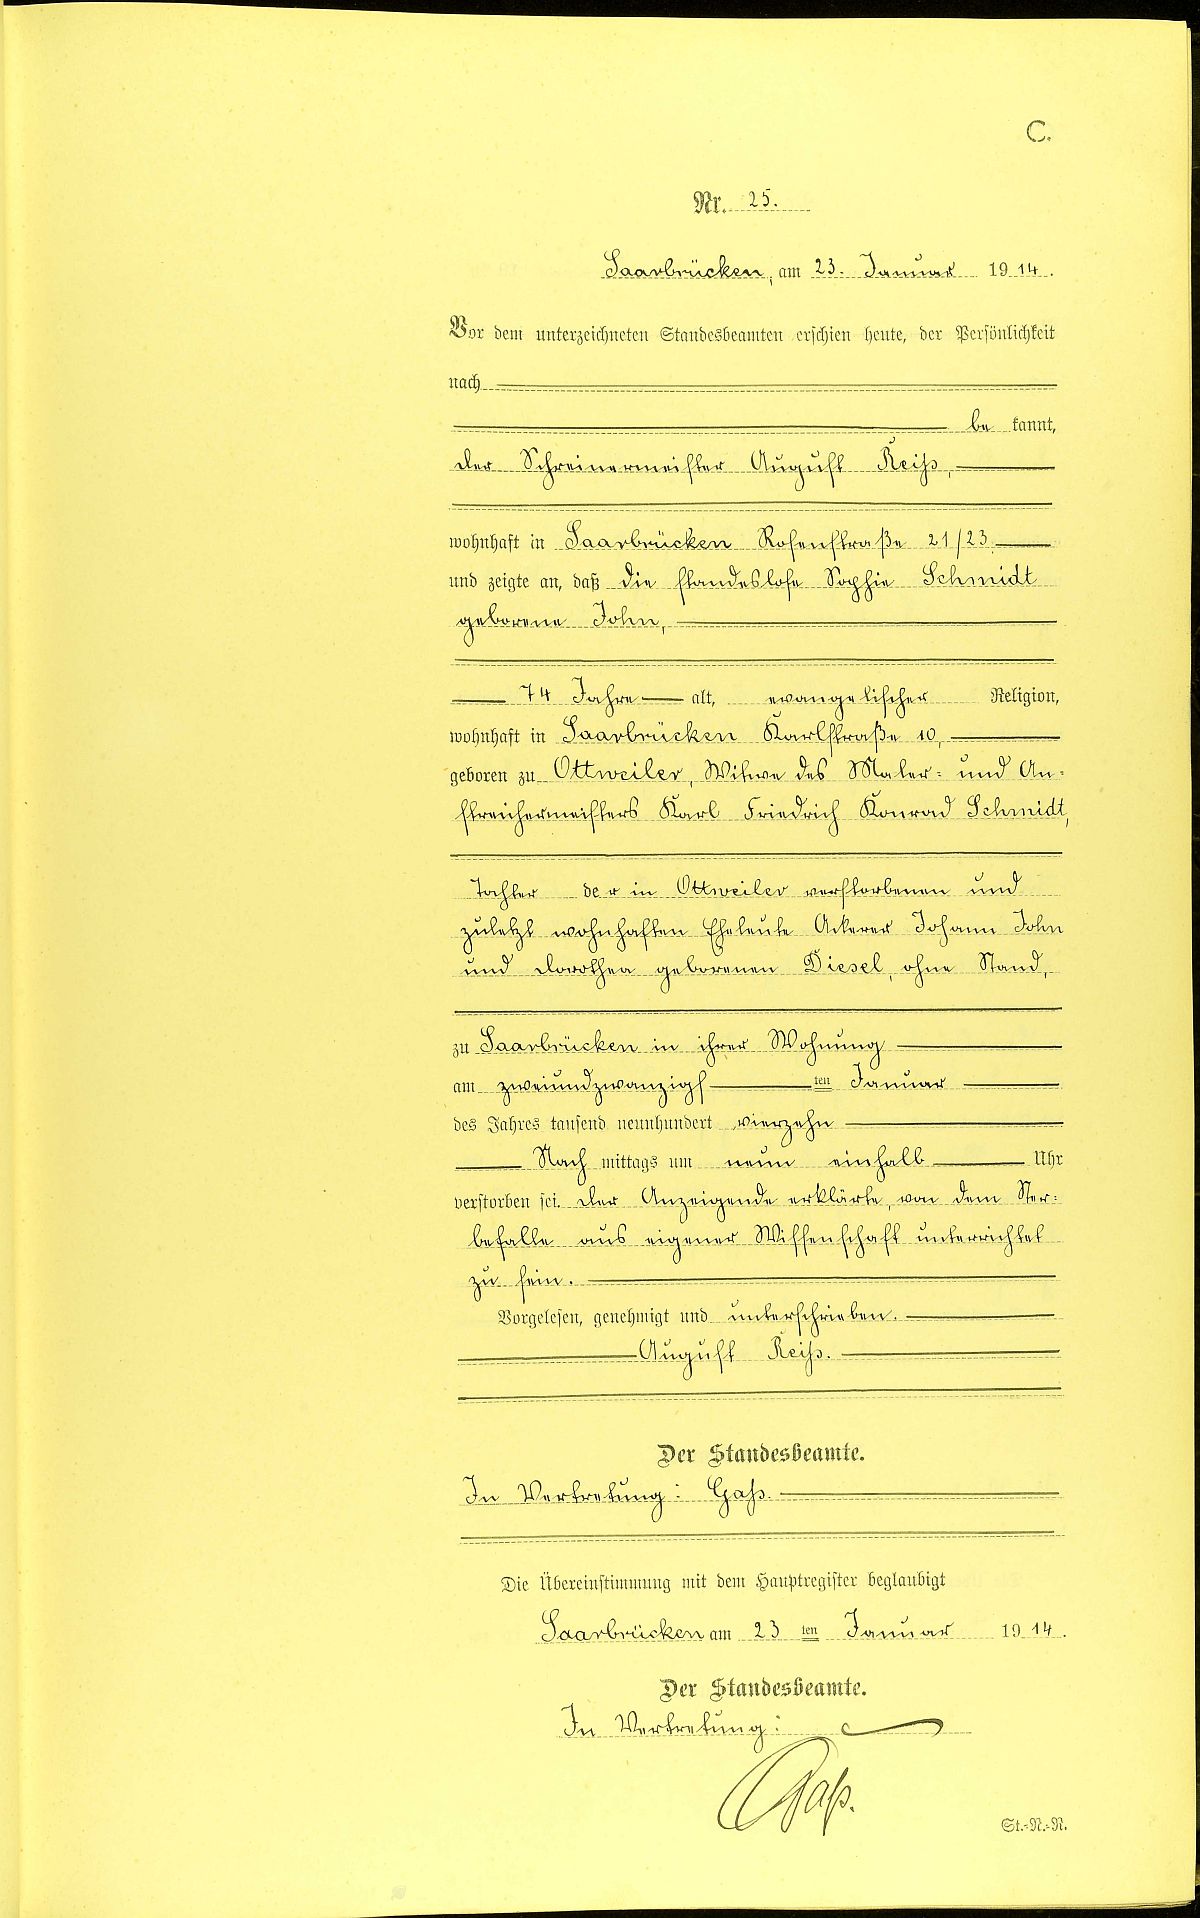 C.
Nr. 25.
Saarbrücken, am 23. Januar 1914.
Vor dem unterzeichneten Standesbeamten erschien heute, der Persönlichkeit
nach
be kannt,
der Schreinermeister August Reiß,
wohnhaft in Saarbrücken Rosenstraße 21/23
und zeigte an, daß die standeslose Sophie Schmidt
geborene John,
74 Jahre alt, evangelischer Religion,
wohnhaft in Saarbrücken Karlstraße 10,
geboren zu Ottweiler, Witwe des Maler= und An=
streichermeisters Karl Friedrich Konrad Schmidt,
Tochter der in Ottweiler verstorbenen und
zuletzt wohnhaften Eheleute Ackerer Johann John
und Dorothea geborenen Diesel, ohne Stand,
zu Saarbrücken in ihrer Wohnung
am zweiundzwanzigsten Januar
des Jahres tausend neunhundert vierzehn
Nach mittags um neun einhalb Uhr
verstorben sei. Der Anzeigende erklärte, von dem Ster=
befalle aus eigener Wissenschaft unterrichtet
zu sein.
Vorgelesen, genehmigt und unterschrieben.
August Reiß.
Der Standesbeamte.
In Vertretung: Gaß.
Die Übereinstimmung mit dem Hauptregister beglaubigt
Saarbrücken am 23 ten Januar 1914.
Der Standesbeamte.
In Vertretung:
Gaß.
St.=N.=R.